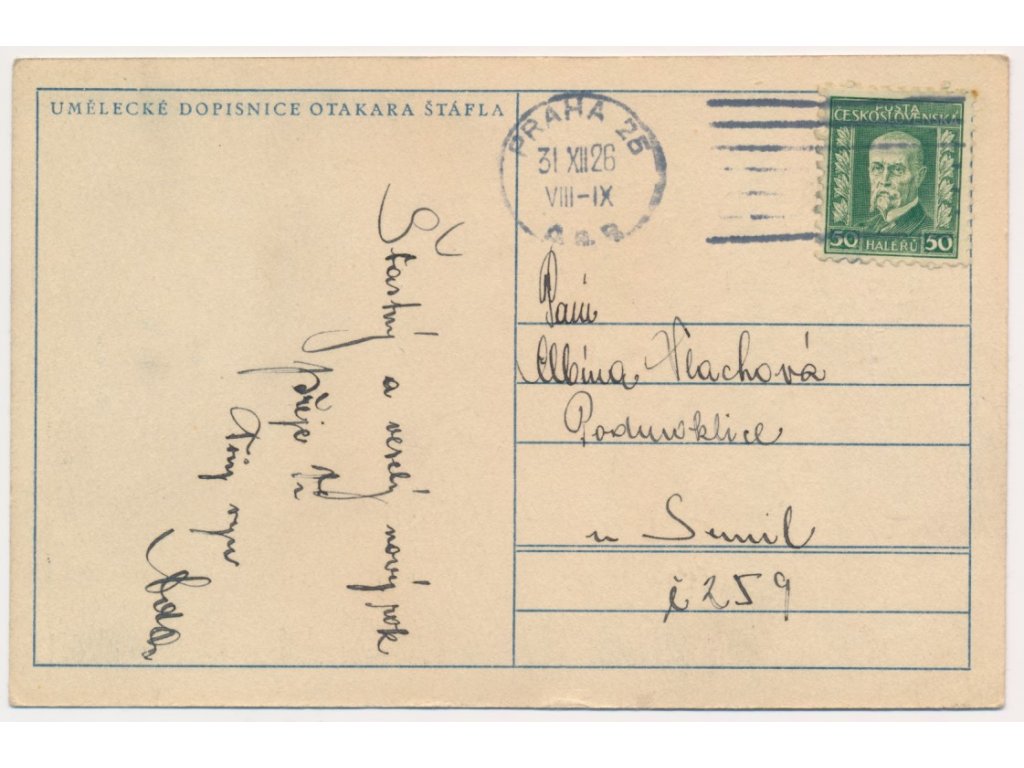 UMĚLECKÉ DOPISNICE OTAKARA ŠTÁFLA
PRAHA 25
31 XII 26
VIII-IX
POŠTA
ČESKOSLOVENSKÁ
50 HALÉŘŮ 50
Šťastný a veselý nový rok
přeje Ti
Tvůj
Paní
Albína Vlachová
Podmoklice
u Semil
č 259